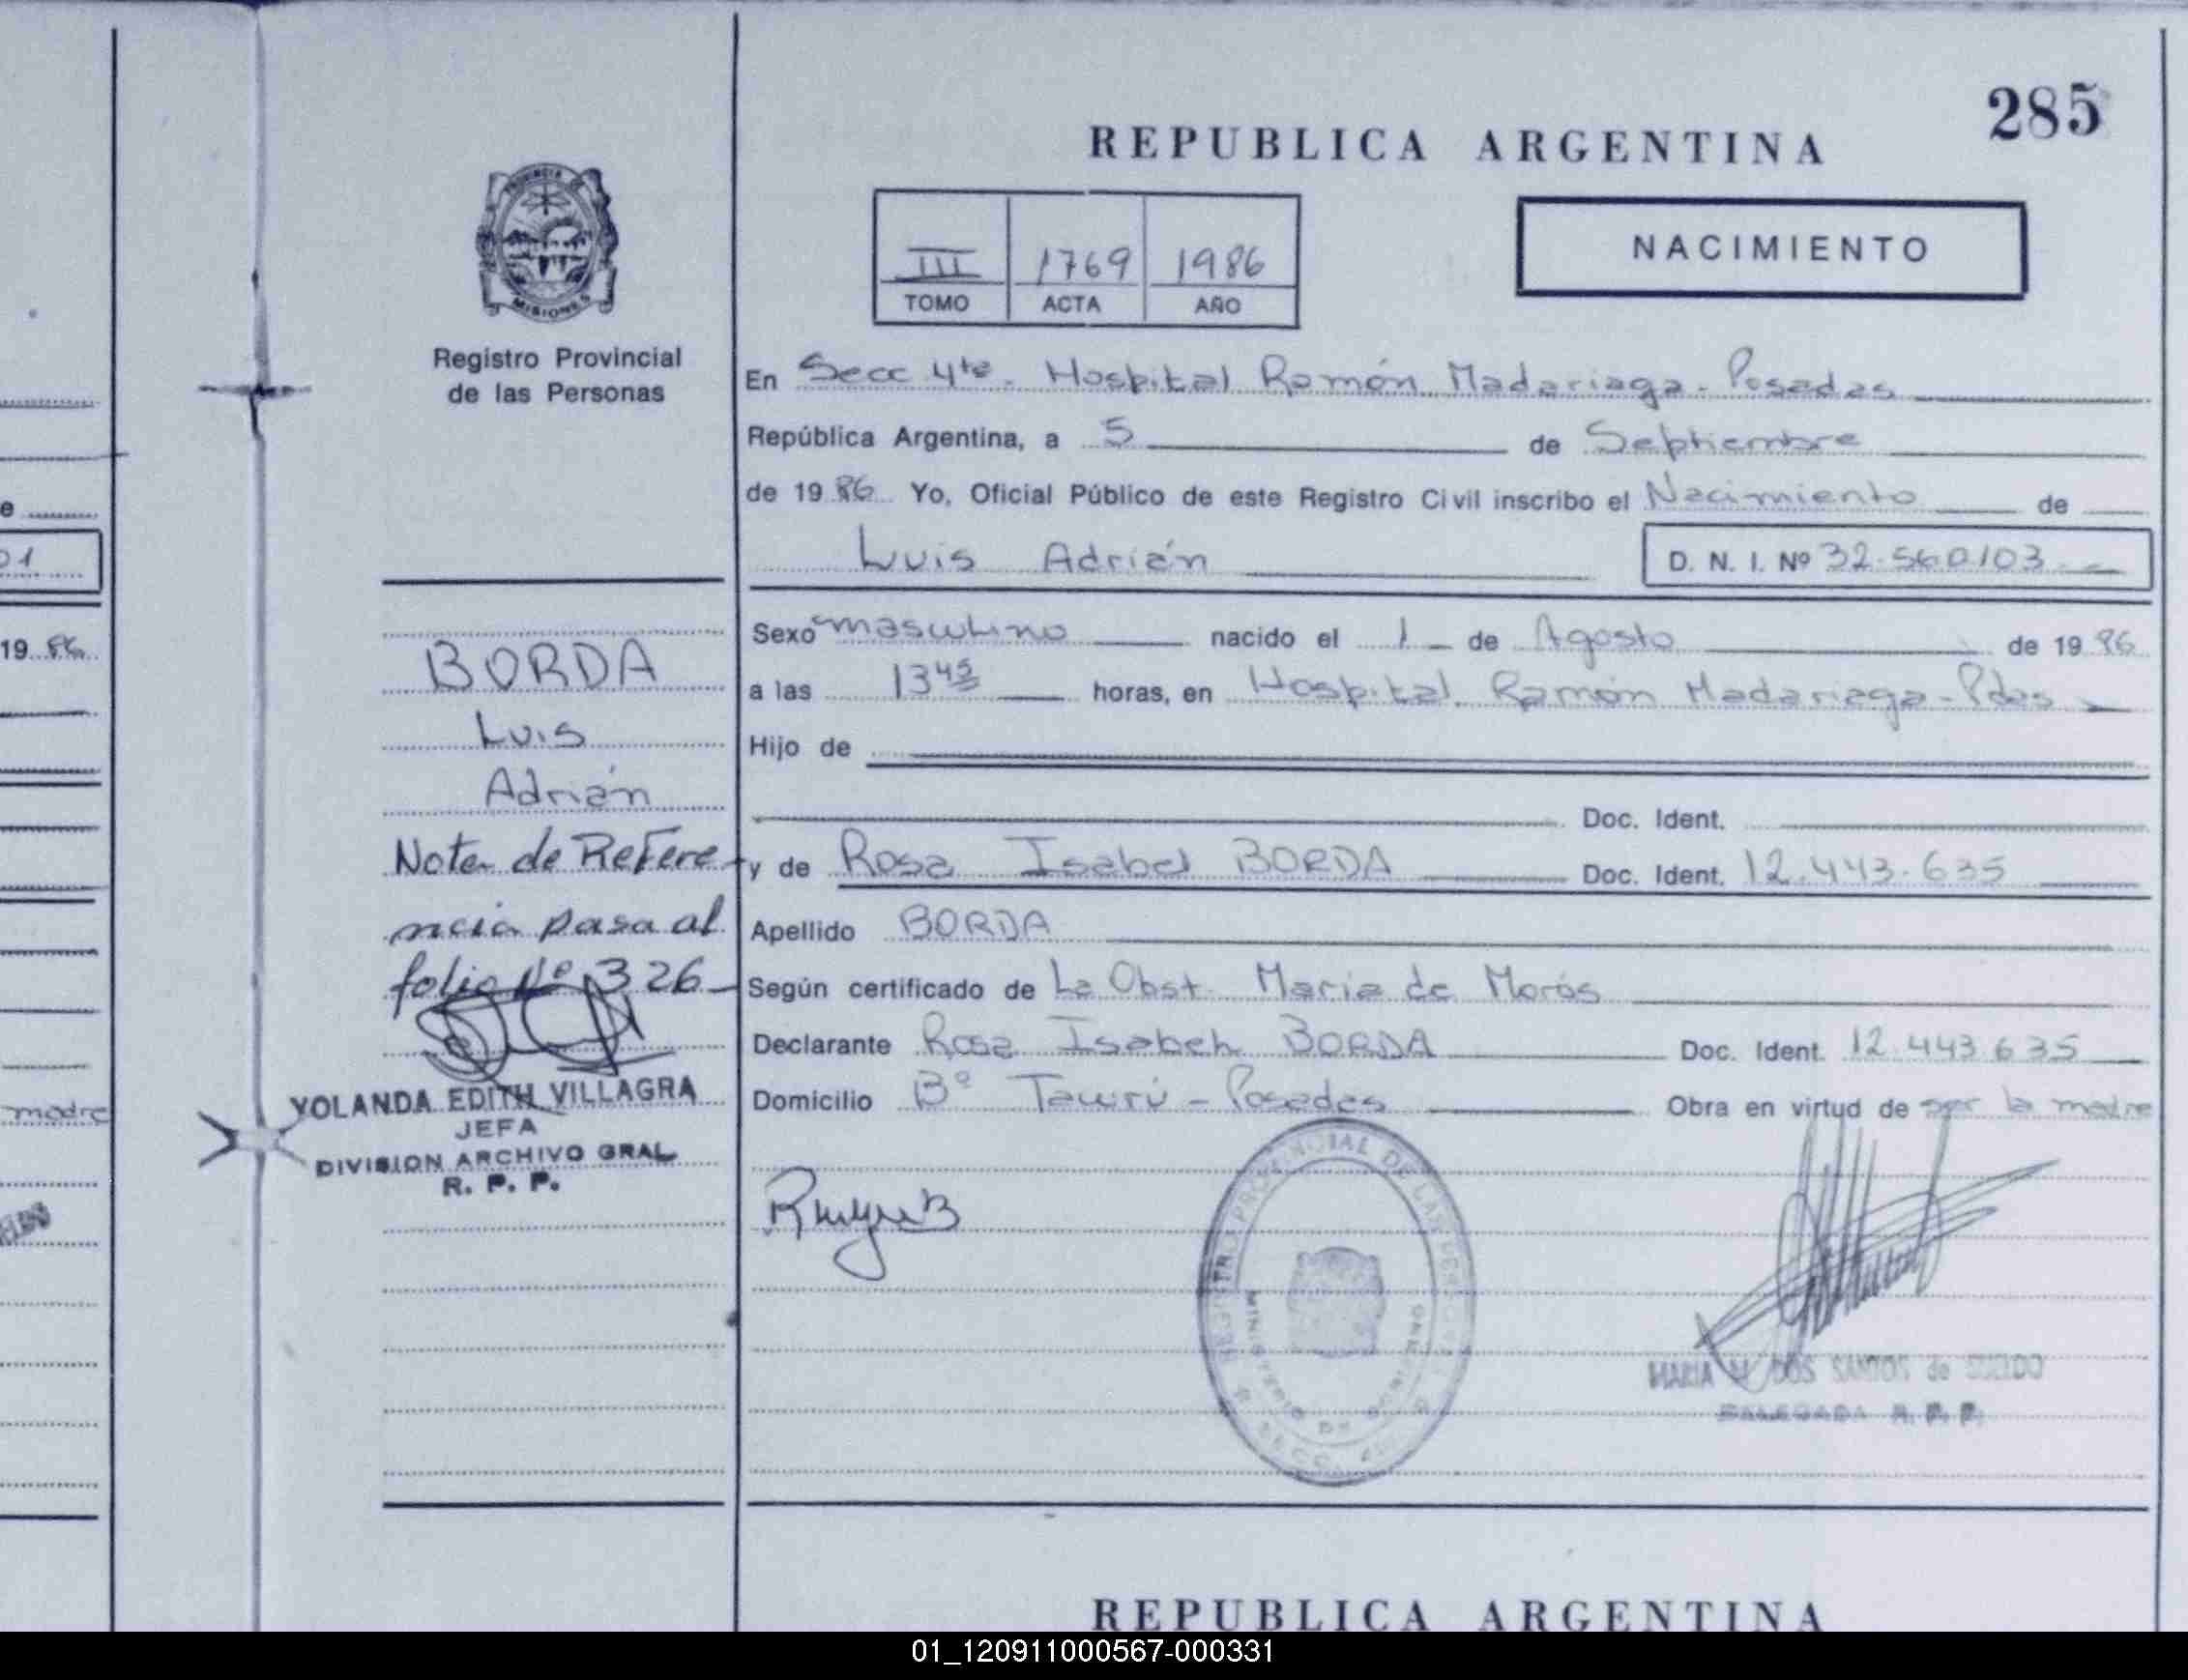 285
REPUBLICA ARGENTINA
PROVINCIA DE
MISIONES
III 1769 1986
TOMO ACTA AÑO
NACIMIENTO
Registro Provincial
de las Personas
En Secc 4ta. Hospital Ramón Madariaga - Posadas
República Argentina, a 5 de Septiembre
de 1986 Yo, Oficial Público de este Registro Civil inscribo el Nacimiento de
Luis Adrián D. N. I. Nº 32.560.103
Sexo masculino nacido el 1 de Agosto de 1986
a las 13 45 horas, en Hospital Ramón Madariaga - Pdas
Hijo de
Doc. Ident.
y de Rosa Isabel BORDA Doc. Ident. 12.443.635
Apellido BORDA
Según certificado de La Obst. Maria de Morás
Declarante Rosa Isabel BORDA Doc. Ident. 12.443.635
Domicilio Bº - Posadas Obra en virtud de ser la madre
BORDA
Luis
Adrián
Nota de Refere
ncia pasa al
folio Nº 326
YOLANDA EDITH VILLAGRA
JEFA
DIVISION ARCHIVO GRAL
R. P. P.
REGISTRO PROVINCIAL DE LAS PERSONAS
MINISTERIO DE GOBIERNO
MARIA DOS SANTOS de
DELEGADA R. P. P.
e
01
19 86
madre
REPUBLICA ARGENTINA
01_120911000567-000331